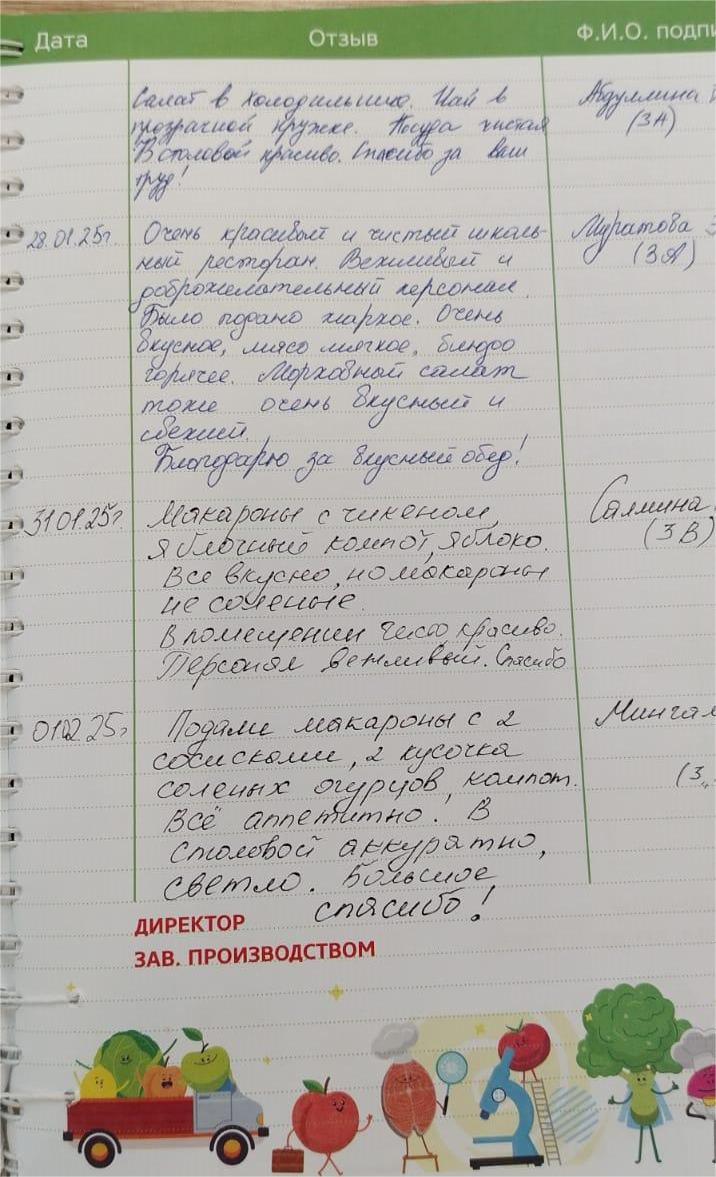 Дата Отзыв Ф.И.О. подпи
Салат в холодильнике. Чай в Абдуллина
прозрачной кружке. Посуда чистая (3А)
В столовой красиво. Спасибо за ваш
труд!
28.01.25г. Очень красивый и чистый школь- Муратова З
ный ресторан. Вежливый и (3А)
доброжелательный персонал.
Было подано жаркое. Очень
вкусное, мясо мягкое, блюдо
горячее. Морковный салат
тоже очень вкусный и
свежий.
Благодарю за вкусный обед!
31.01.25г Макароны с чикеном, Салмина
яблочный компот, яблоко. (3В)
Все вкусно, но макароны
не соленые.
В помещении чисто, красиво.
Персонал вежливый. Спасибо
01.02.25г Подали макароны с 2 Мингал
сосисками, 2 кусочка
соленых огурцов, компот. (3
Всё аппетитно! В
столовой аккуратно,
светло. Большое
спасибо!
ДИРЕКТОР
ЗАВ. ПРОИЗВОДСТВОМ